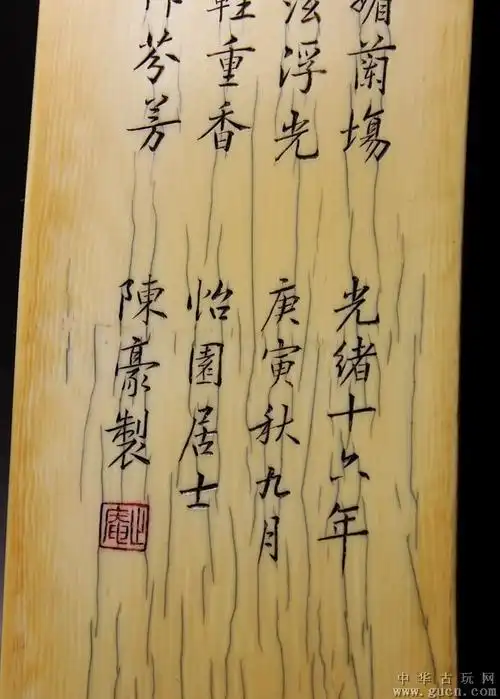 媚蘭塲
泫浮光
輕重香
作芬芳
光緒十六年
庚寅秋九月
怡園居士
陳豪製
中华古玩网
www.gucn.com